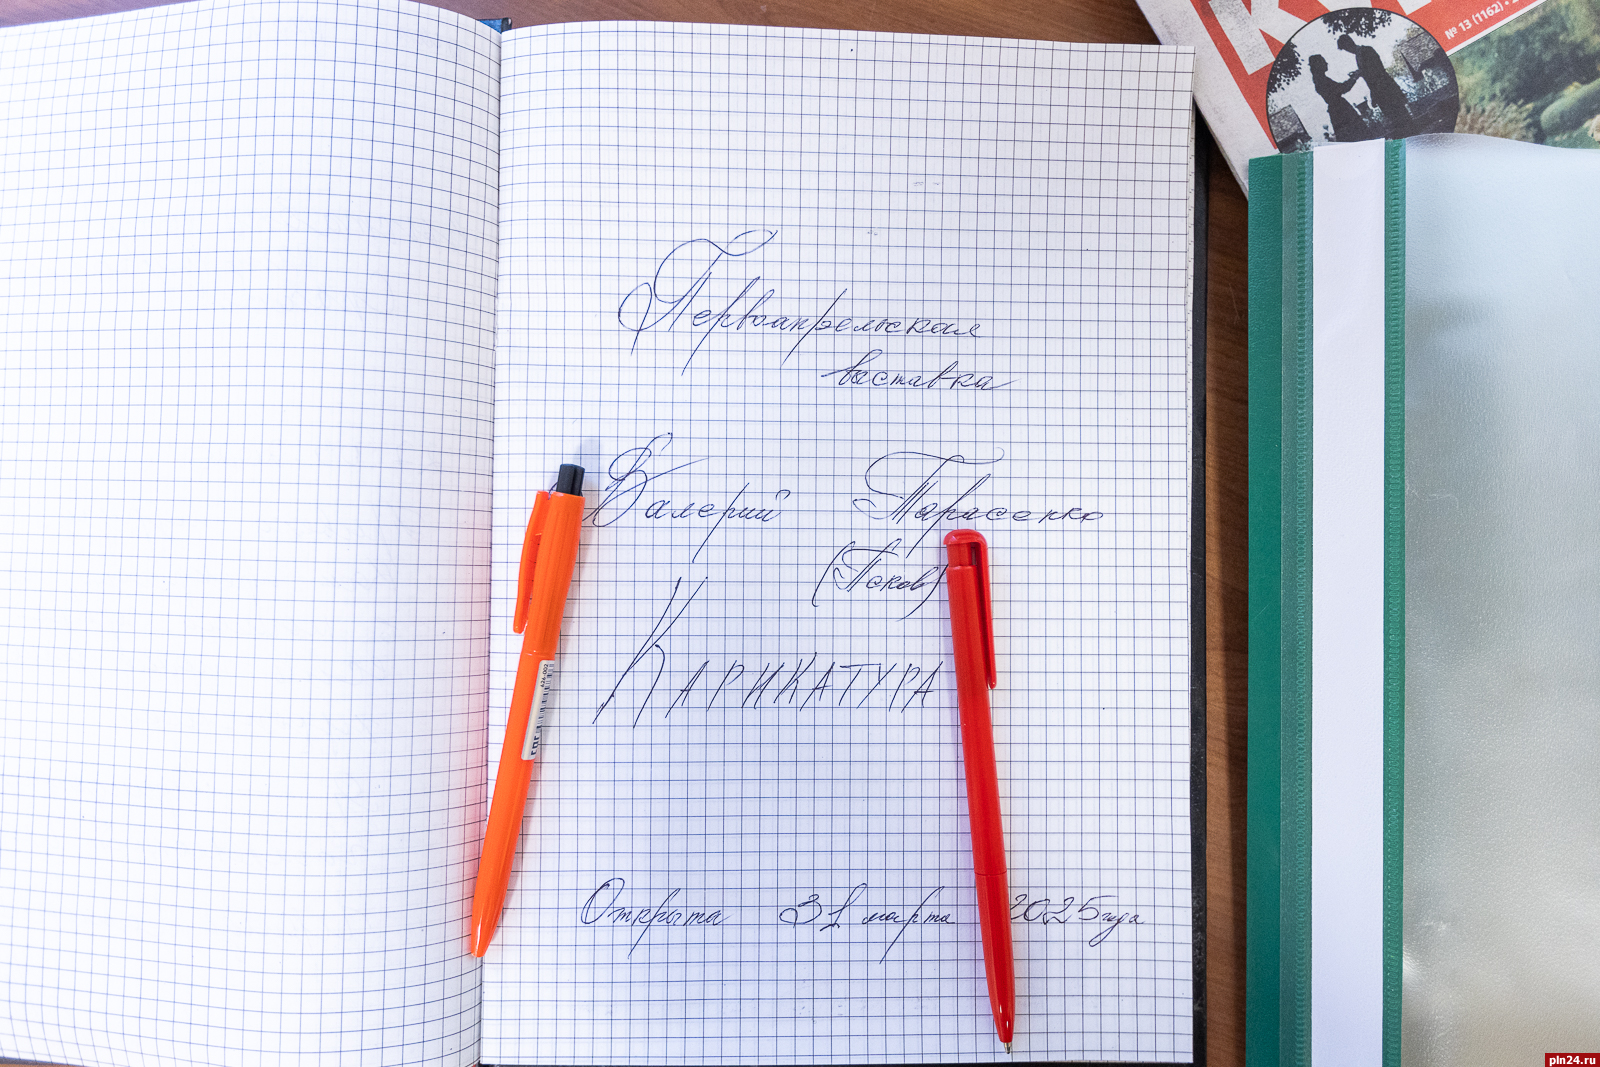 № 13 (1162) •
Первоапрельская
выставка
Валерий Тарасенко
(Псков)
КАРИКАТУРА
Открыта 31 марта 2025 года
pln24.ru